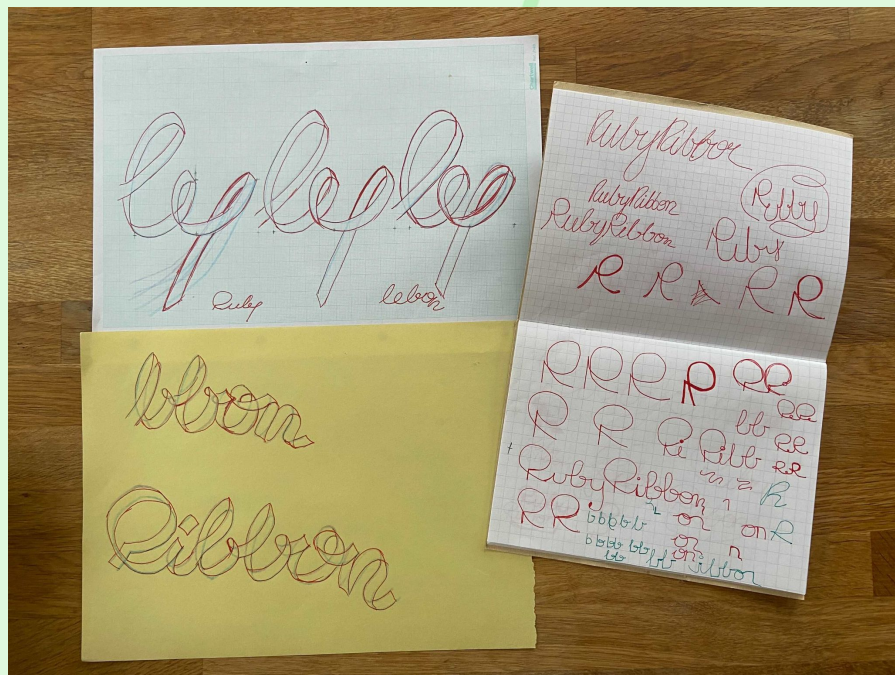 ley ley ley
Ruby lebon
bbron
Ribbron
RubyRibbon
RubyRibbon
Ruby
RubyRibbon
Riby
R R R R
R R R R RR
RR
R R Ri Ribb bb RR
RR
RubyRibbon R
RR bbbbb on on R
bbbb bb on n
bb bb ibbon